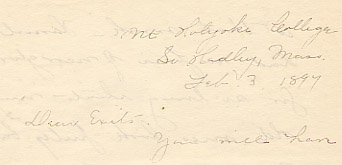 Mt Holyoke College
So. Hadley, Mass.
Feb. 3 1897
Dear Exits:
You will have